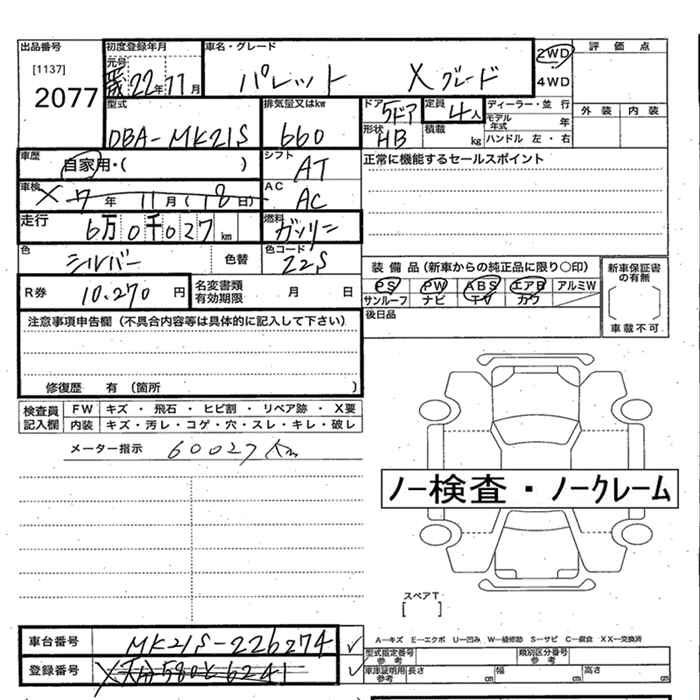 出品番号 初度登録年月 車名・グレード 2WD 評価点
[1137] 元号 22年 11月 パレット Xグレード 4WD
2077
型式 排気量又はkw ドア 5ドア 定員 4人 ディーラー・並行 外装 内装
DBA-MK21S 660 形状 HB 積載 kg モデル年式 年
ハンドル 左・右
車歴 自家用・( ) シフト AT 正常に機能するセールスポイント
車検 X 7年 11月 (18日) AC AC
走行 6万0千027km 燃料 ガソリン
色 シルバー 色替 色コード Z2S
装備品(新車からの純正品に限り○印) 新車保証書の有無
R券 10.270円 名変書類有効期限 月 日 PS PW ABS エアB アルミW
サンルーフ ナビ TV カワ
車載不可
後日品
注意事項申告欄(不具合内容等は具体的に記入して下さい)
修復歴 有(箇所 )
検査員記入欄 FW キズ・飛石・ヒビ割・リペア跡・X要
内装 キズ・汚レ・コゲ・穴・スレ・キレ・破レ
メーター指示 60027Km
ノー検査・ノークレーム
スペアT
[ ]
車台番号 MK21S-226274
A―キズ E―エクボ U―凹み W―補修跡 S―サビ C―腐食 XX―交換済
型式指定番号 参考 類別区分番号 参考
登録番号
車庫証明用 参考 長さ cm 幅 cm 高さ cm